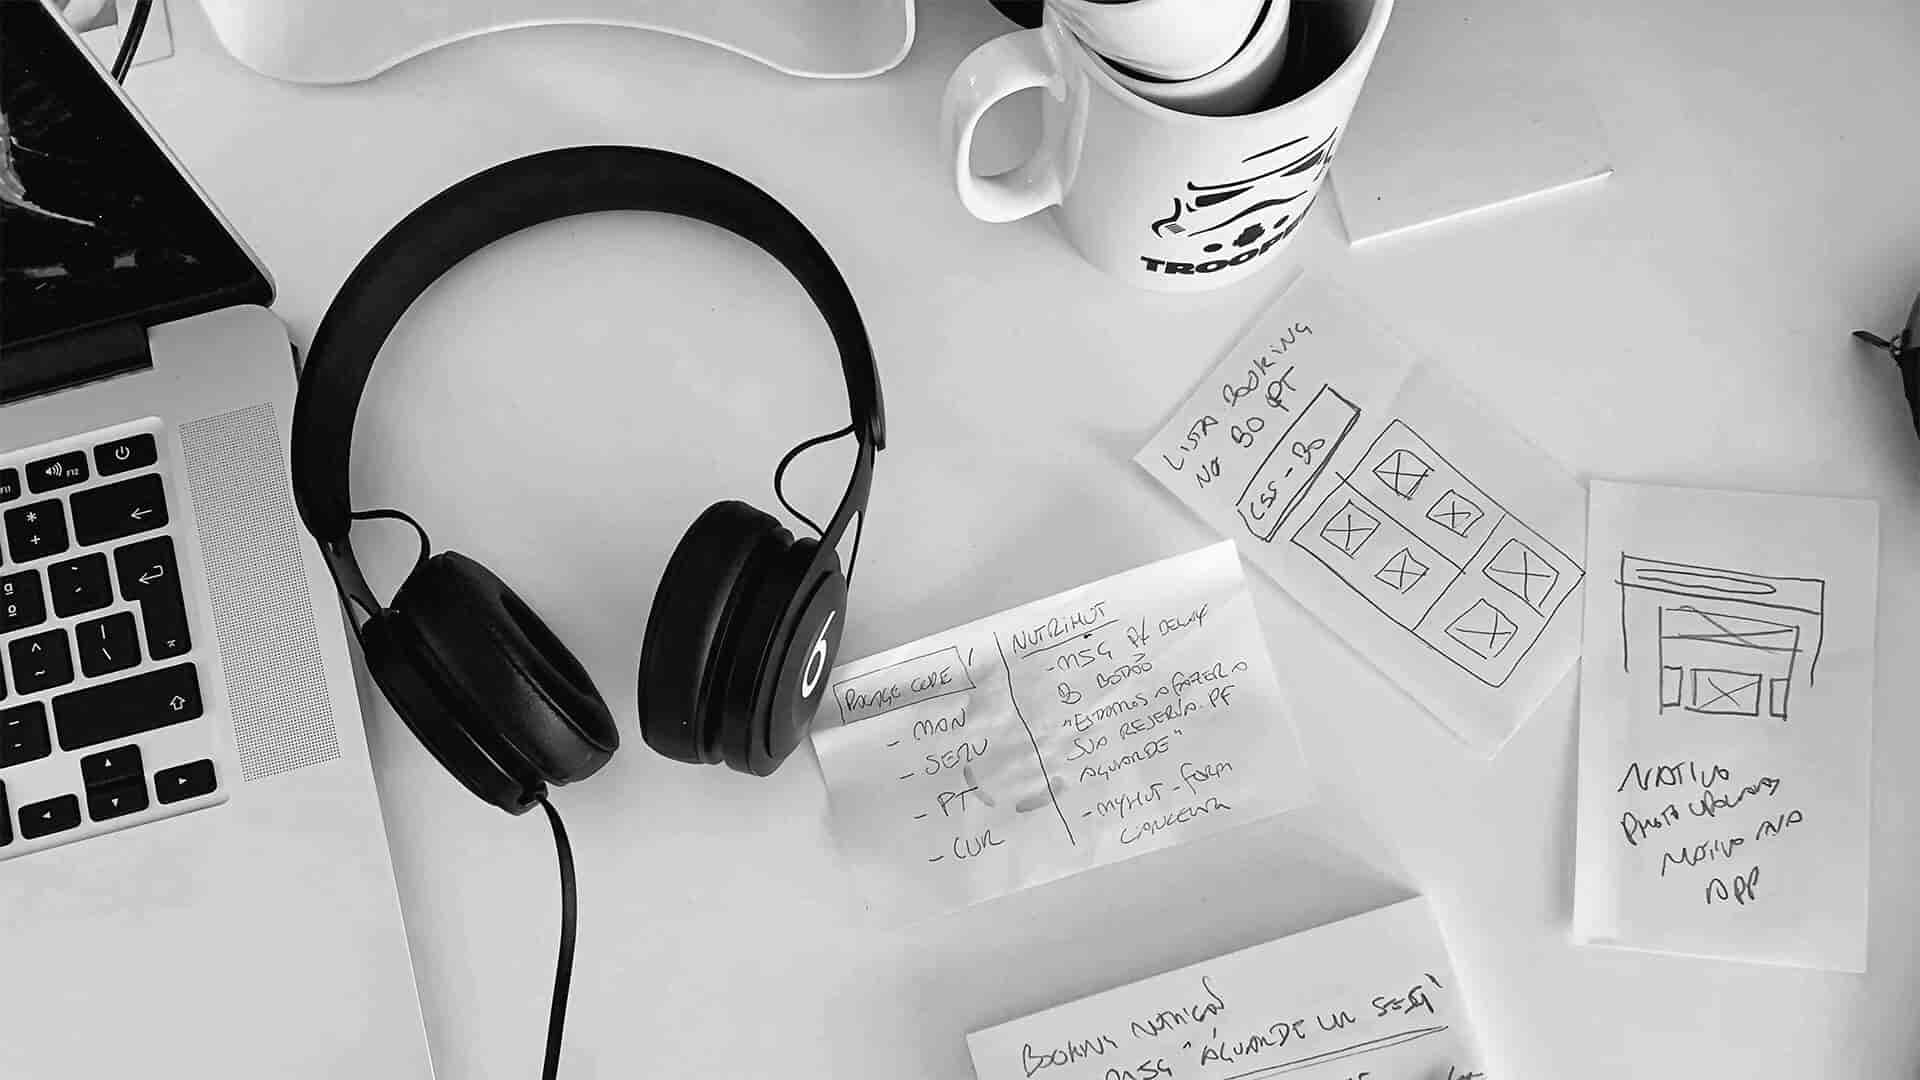 TROOPE
F12
LISTA BOOKING
NO BO PT
CSS - BO
PACKAGE CODE
- MAN
- SERV
- PT
- CUR
NUTRIHUT
- MSG P/ DELAY
B BOTÃO
"ESTAMOS A FAZER A
SUA RESERVA PF
AGUARDE"
- MYHUT - FORM
CONCELHO
NATIVO
PHOTO UPLOADS
NATIVO NA
APP
BOOKING
MSG "AGUARDE UM SEG"